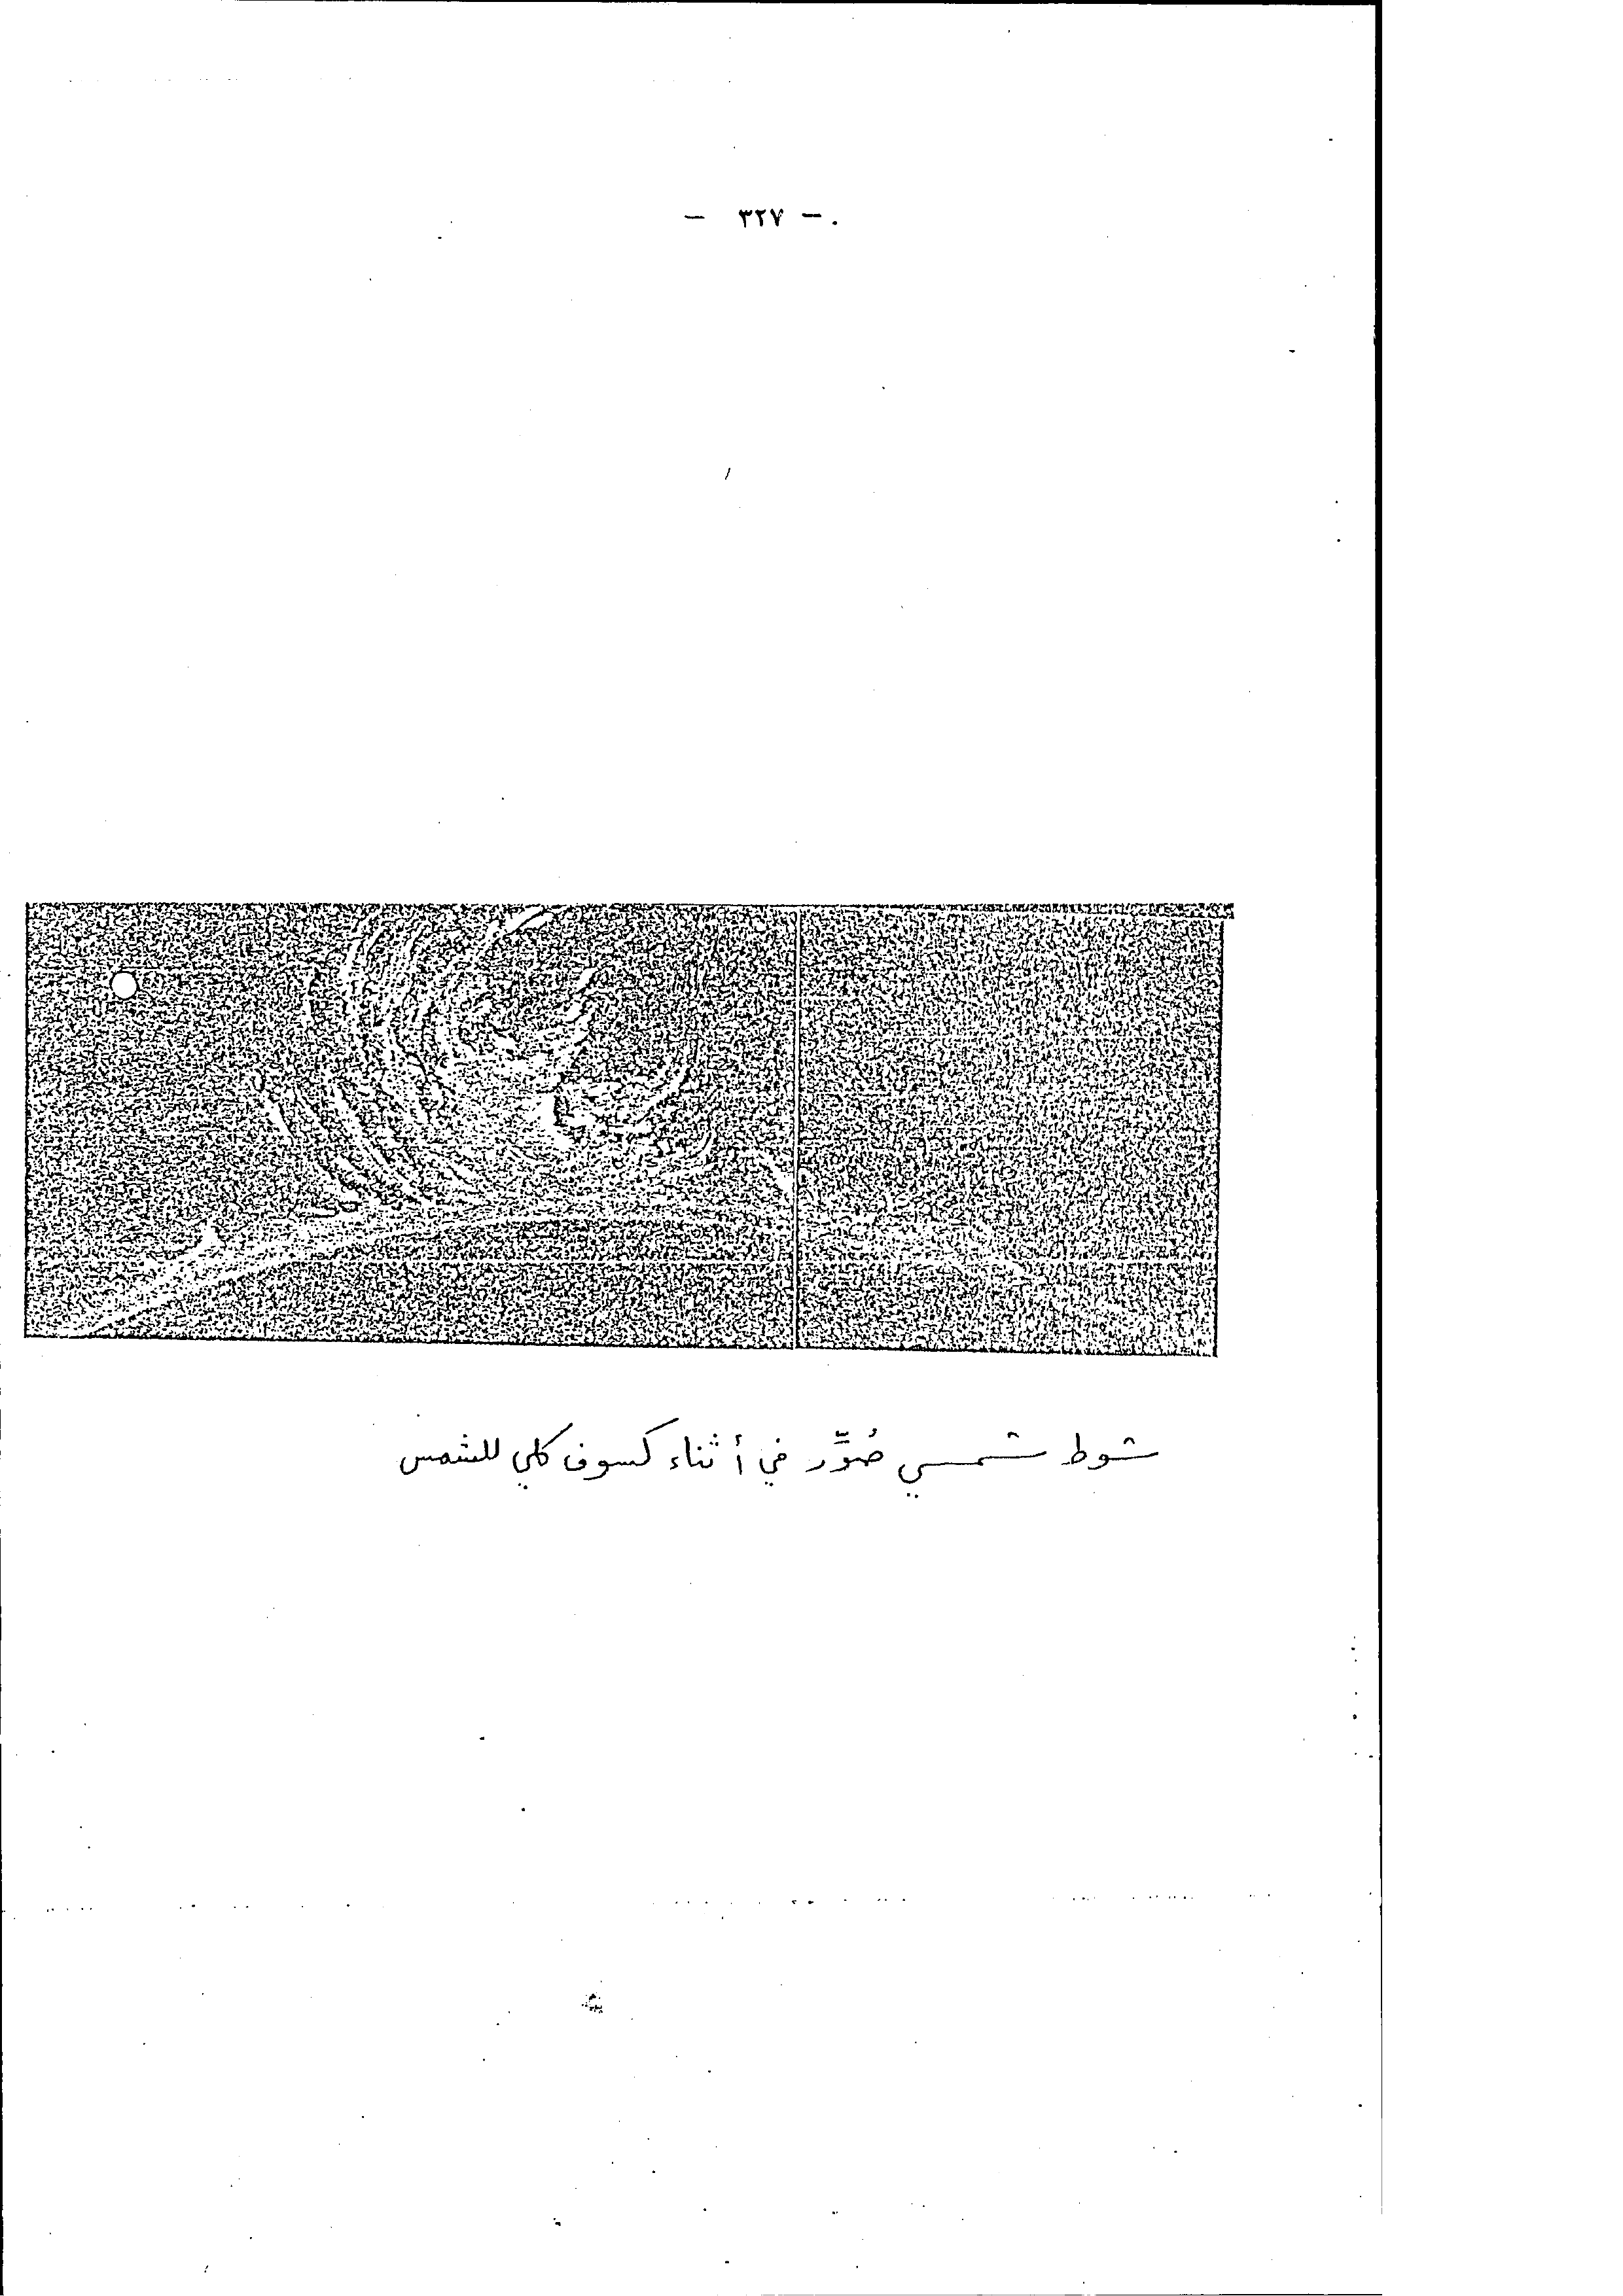 — ٣٢٧ —
شوط شمسي صُوِّر في أثناء كسوف كلي للشمس